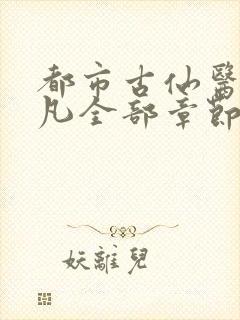 都市古仙醫
凡全部章節
妖離兒